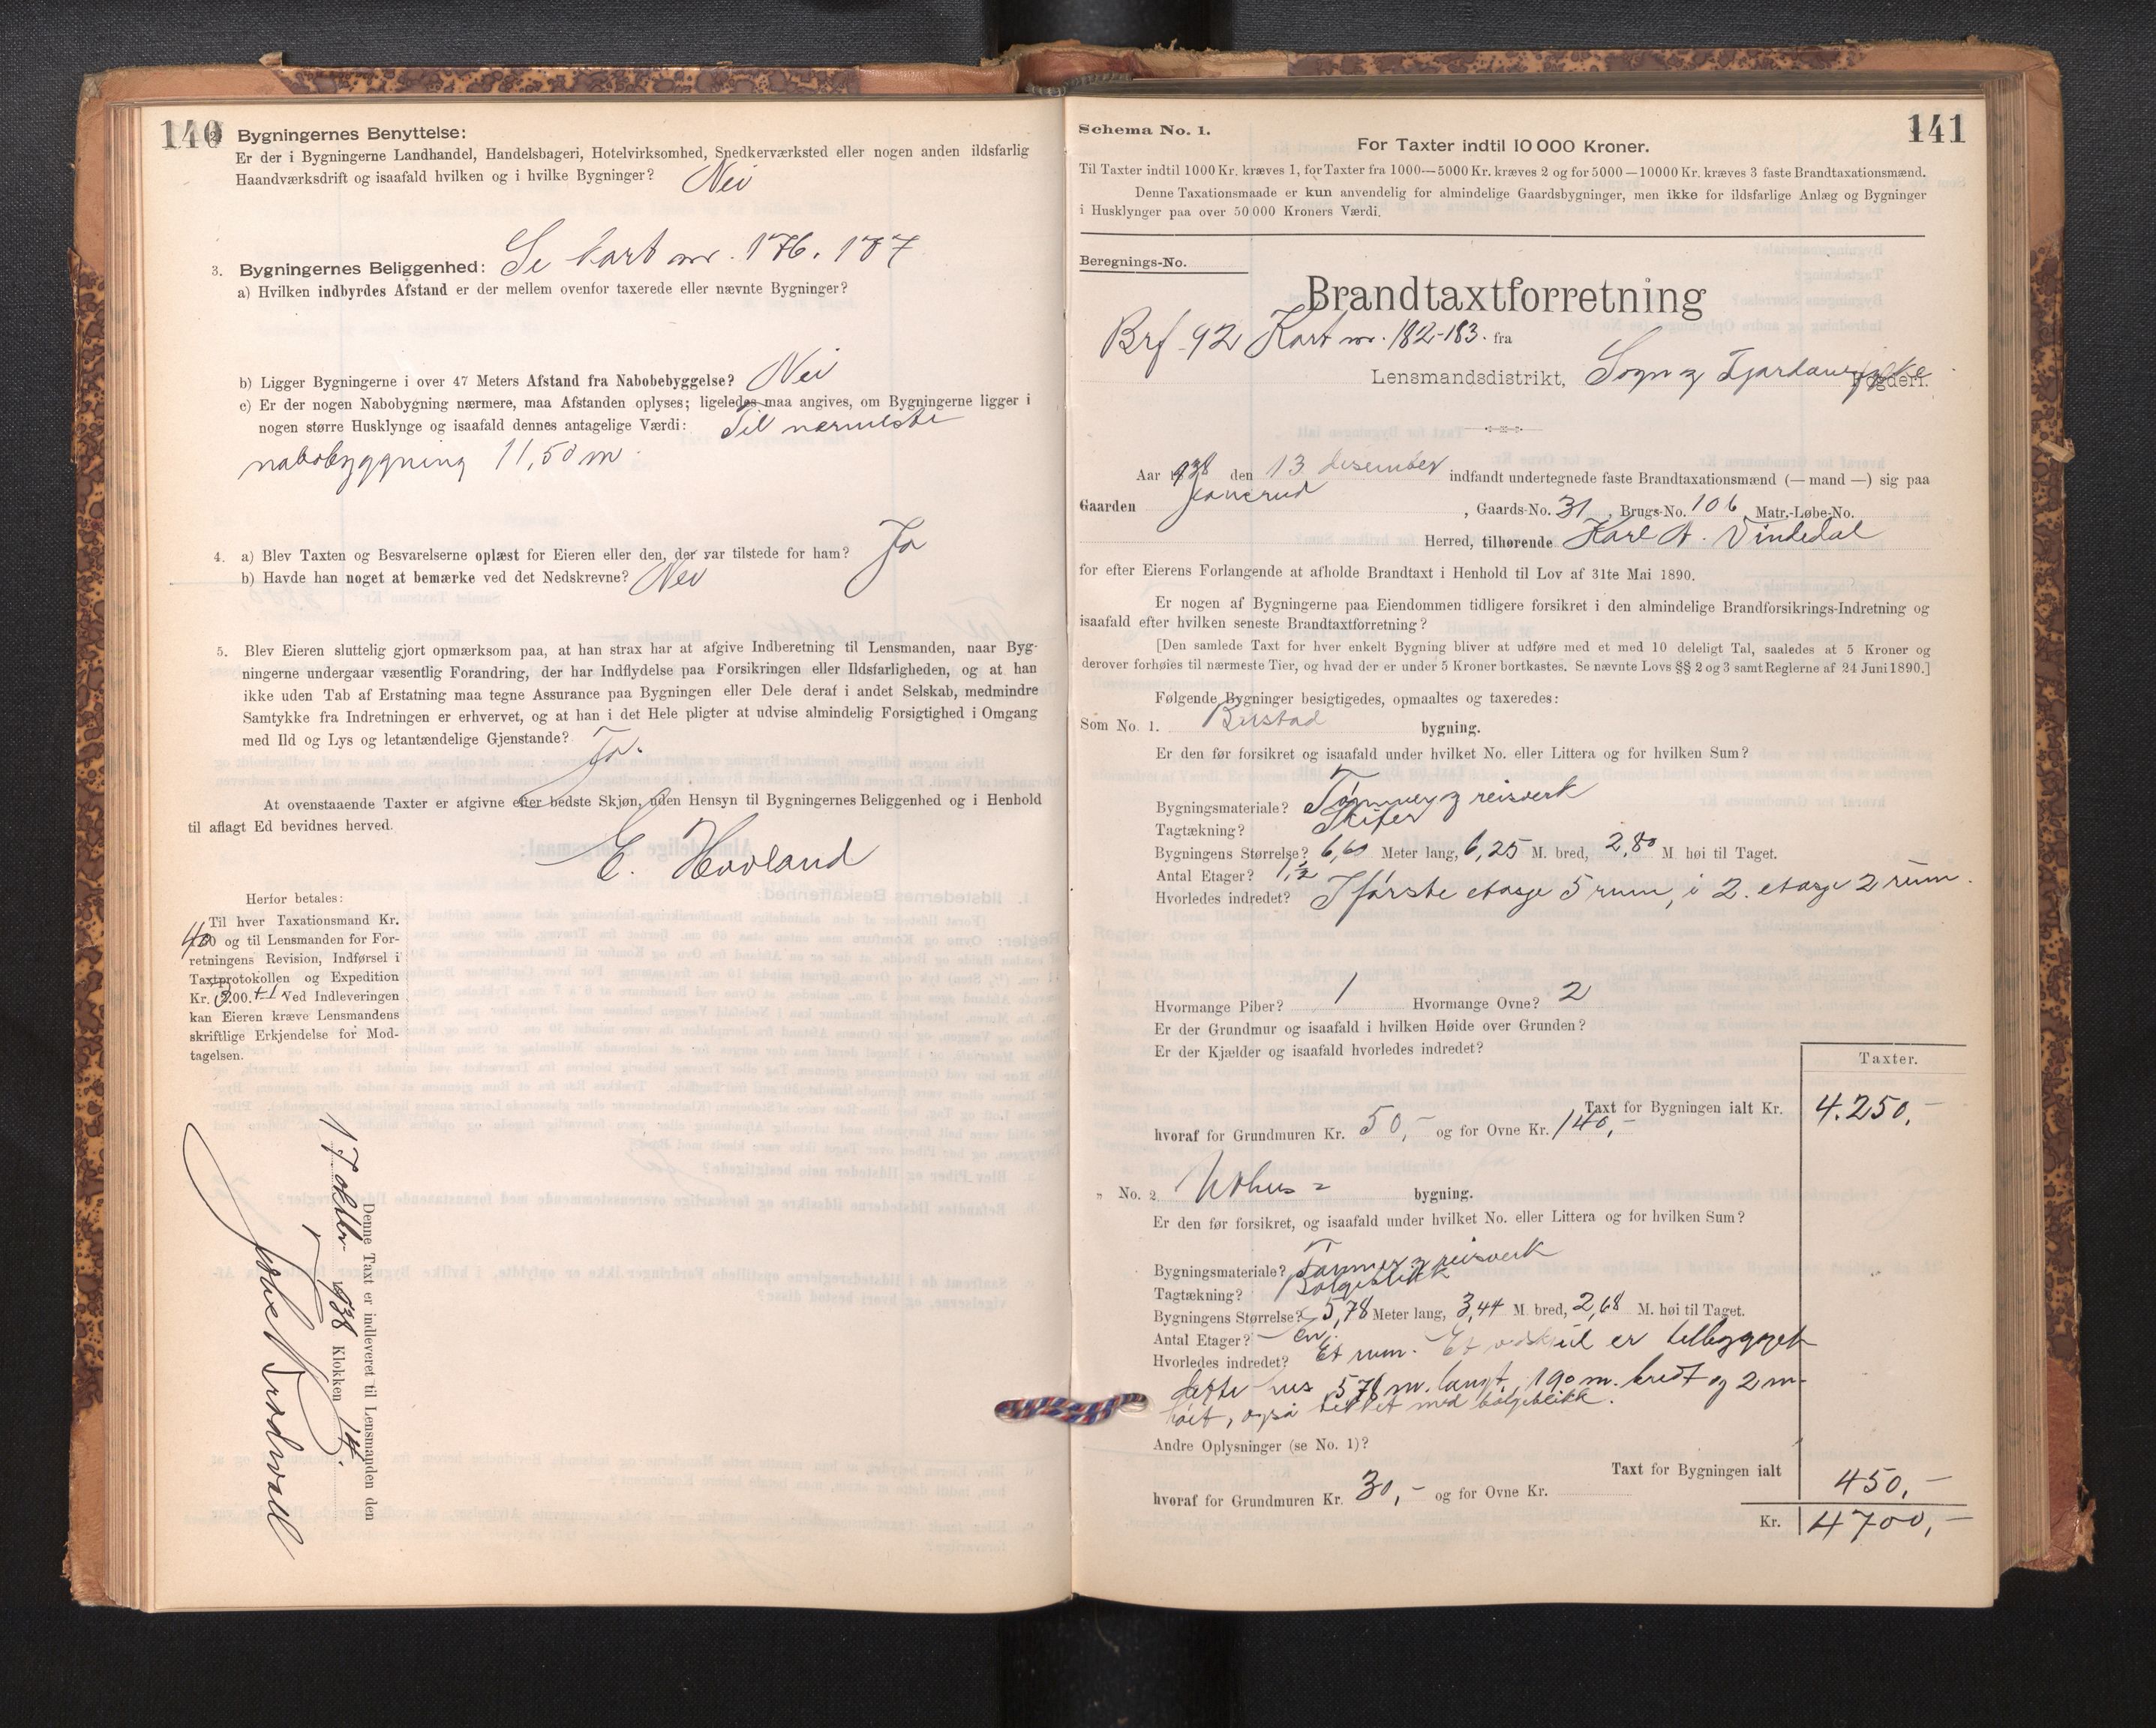 140
Bygningernes Benyttelse:
Er der i Bygningerne Landhandel, Handelsbageri, Hotelvirksomhed, Snedkerværksted eller nogen anden ildsfarlig
Haandværksdrift og isaafald hvilken og i hvilke Bygninger? Nei
3. Bygningernes Beliggenhed: Se kart nr. 176. 177
a) Hvilken indbyrdes Afstand er der mellem ovenfor taxerede eller nævnte Bygninger?
b) Ligger Bygningerne i over 47 Meters Afstand fra Nabobebyggelse? Nei
c) Er der nogen Nabobygning nærmere, maa Afstanden oplyses; ligeledes maa angives, om Bygningerne ligger i
nogen større Husklynge og isaafald dennes antagelige Værdi: Til nærmeste
nabobyggning 11,50 m.
4. a) Blev Taxten og Besvarelserne oplæst for Eieren eller den, der var tilstede for ham? Ja
b) Havde han noget at bemærke ved det Nedskrevne? Nei
5. Blev Eieren sluttelig gjort opmærksom paa, at han strax har at afgive Indberetning til Lensmanden, naar Byg-
ningerne undergaar væsentlig Forandring, der har Indflydelse paa Forsikringen eller Ildsfarligheden, og at han
ikke uden Tab af Erstatning maa tegne Assurance paa Bygningen eller Dele deraf i andet Selskab, medmindre
Samtykke fra Indretningen er erhvervet, og at han i det Hele pligter at udvise almindelig Forsigtighed i Omgang
med Ild og Lys og letantændelige Gjenstande? Ja.
At ovenstaaende Taxter er afgivne efter bedste Skjøn, uden Hensyn til Bygningernes Beliggenhed og i Henhold
til aflagt Ed bevidnes herved.
E. Hovland
Herfor betales:
Til hver Taxationsmand Kr.
4,00 og til Lensmanden for For-
retningens Revision, Indførsel i
Taxtprotokollen og Expedition
Kr. 3.00. +1 Ved Indleveringen
kan Eieren kræve Lensmandens
skriftlige Erkjendelse for Mod-
tagelsen.
Denne Taxt er indleveret til Lensmanden den
17 oktbr. 1938 Klokken 14.
141
Schema No. 1.
For Taxter indtil 10 000 Kroner.
Til Taxter indtil 1000 Kr. kræves 1, for Taxter fra 1000—5000 Kr. kræves 2 og for 5000—10000 Kr. kræves 3 faste Brandtaxationsmænd.
Denne Taxationsmaade er kun anvendelig for almindelige Gaardsbygninger, men ikke for ildsfarlige Anlæg og Bygninger
i Husklynger paa over 50 000 Kroners Værdi.
Beregnings-No.
Brandtaxtforretning
Brf 92 Kart nr. 182-183. fra
Lensmandsdistrikt, Sogn og Fjordane fylke Fogderi.
Aar 1938 den 13 desember indfandt undertegnede faste Brandtaxationsmænd (— mand —) sig paa
Gaarden , Gaards-No. 31 , Brugs-No. 106 Matr.-Løbe-No.
Herred, tilhørende Karl A. Vindedal
for efter Eierens Forlangende at afholde Brandtaxt i Henhold til Lov af 31te Mai 1890.
Er nogen af Bygningerne paa Eiendommen tidligere forsikret i den almindelige Brandforsikrings-Indretning og
isaafald efter hvilken seneste Brandtaxtforretning?
[Den samlede Taxt for hver enkelt Bygning bliver at udføre med et med 10 deleligt Tal, saaledes at 5 Kroner og
derover forhøies til nærmeste Tier, og hvad der er under 5 Kroner bortkastes. Se nævnte Lovs §§ 2 og 3 samt Reglerne af 24 Juni 1890.]
Følgende Bygninger besigtigedes, opmaaltes og taxeredes:
Som No. 1. bygning.
Er den før forsikret og isaafald under hvilket No. eller Littera og for hvilken Sum?
Bygningsmateriale? Tømmer og reisverk
Tagtækning? Skifer
Bygningens Størrelse? 6,60 Meter lang, 6,25 M. bred, 2,80 M. høi til Taget.
Antal Etager? 1 1/2
Hvorledes indredet? I første etasje 5 rum, i 2. etasje 2 rum.
Hvormange Piber? 1 Hvormange Ovne? 2
Er der Grundmur og isaafald i hvilken Høide over Grunden?
Er der Kjælder og isaafald hvorledes indredet?
Taxter.
Taxt for Bygningen ialt Kr. 4.250,-
hvoraf for Grundmuren Kr. 50,- og for Ovne Kr. 140,-
" No. 2 bygning.
Er den før forsikret, og isaafald under hvilket No. eller Littera og for hvilken Sum?
Bygningsmateriale? Tømmer og reisverk
Tagtækning? Bølgeblikk
Bygningens Størrelse? 5,78 Meter lang, 3,44 M. bred, 2,68 M. høi til Taget.
Antal Etager? En.
Hvorledes indredet? Et rum. Et vedskjul er tilbygget
dette hus 578 m. langt, 190 m. bredt og 2 m.
høit, også tekket med bølgeblikk.
Andre Oplysninger (se No. 1)?
Taxt for Bygningen ialt 450,-
hvoraf for Grundmuren Kr. 30,- og for Ovne Kr.
Kr. 4700,-